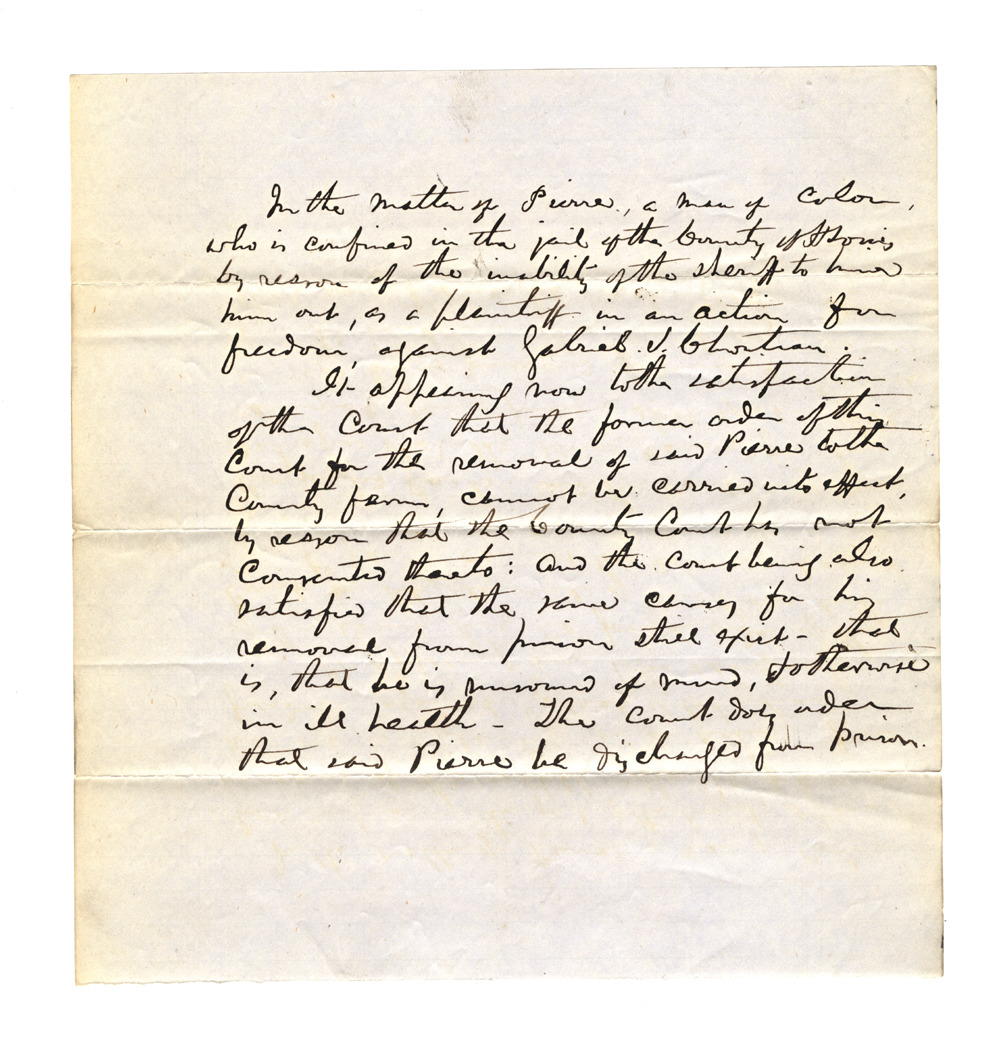 In the matter of Pierre, a man of color,
who is confined in the jail of the County of St Louis
by reason of the inability of the sheriff to hire
him out, as a plaintiff in an action for
freedom, against Gabriel S. Choutian.
It appearing now to the satisfaction
of the Court that the former order of this
Court for the removal of said Pierre to the
County farm, cannot be carried into effect,
by reason that the County Court has not
Consented thereto: and the court being also
satisfied that the same causes for his
removal from prison still exist – that
is, that he is unsound of mind, & otherwise
in ill health – The court doth order
that said Pierre be discharged from prison.